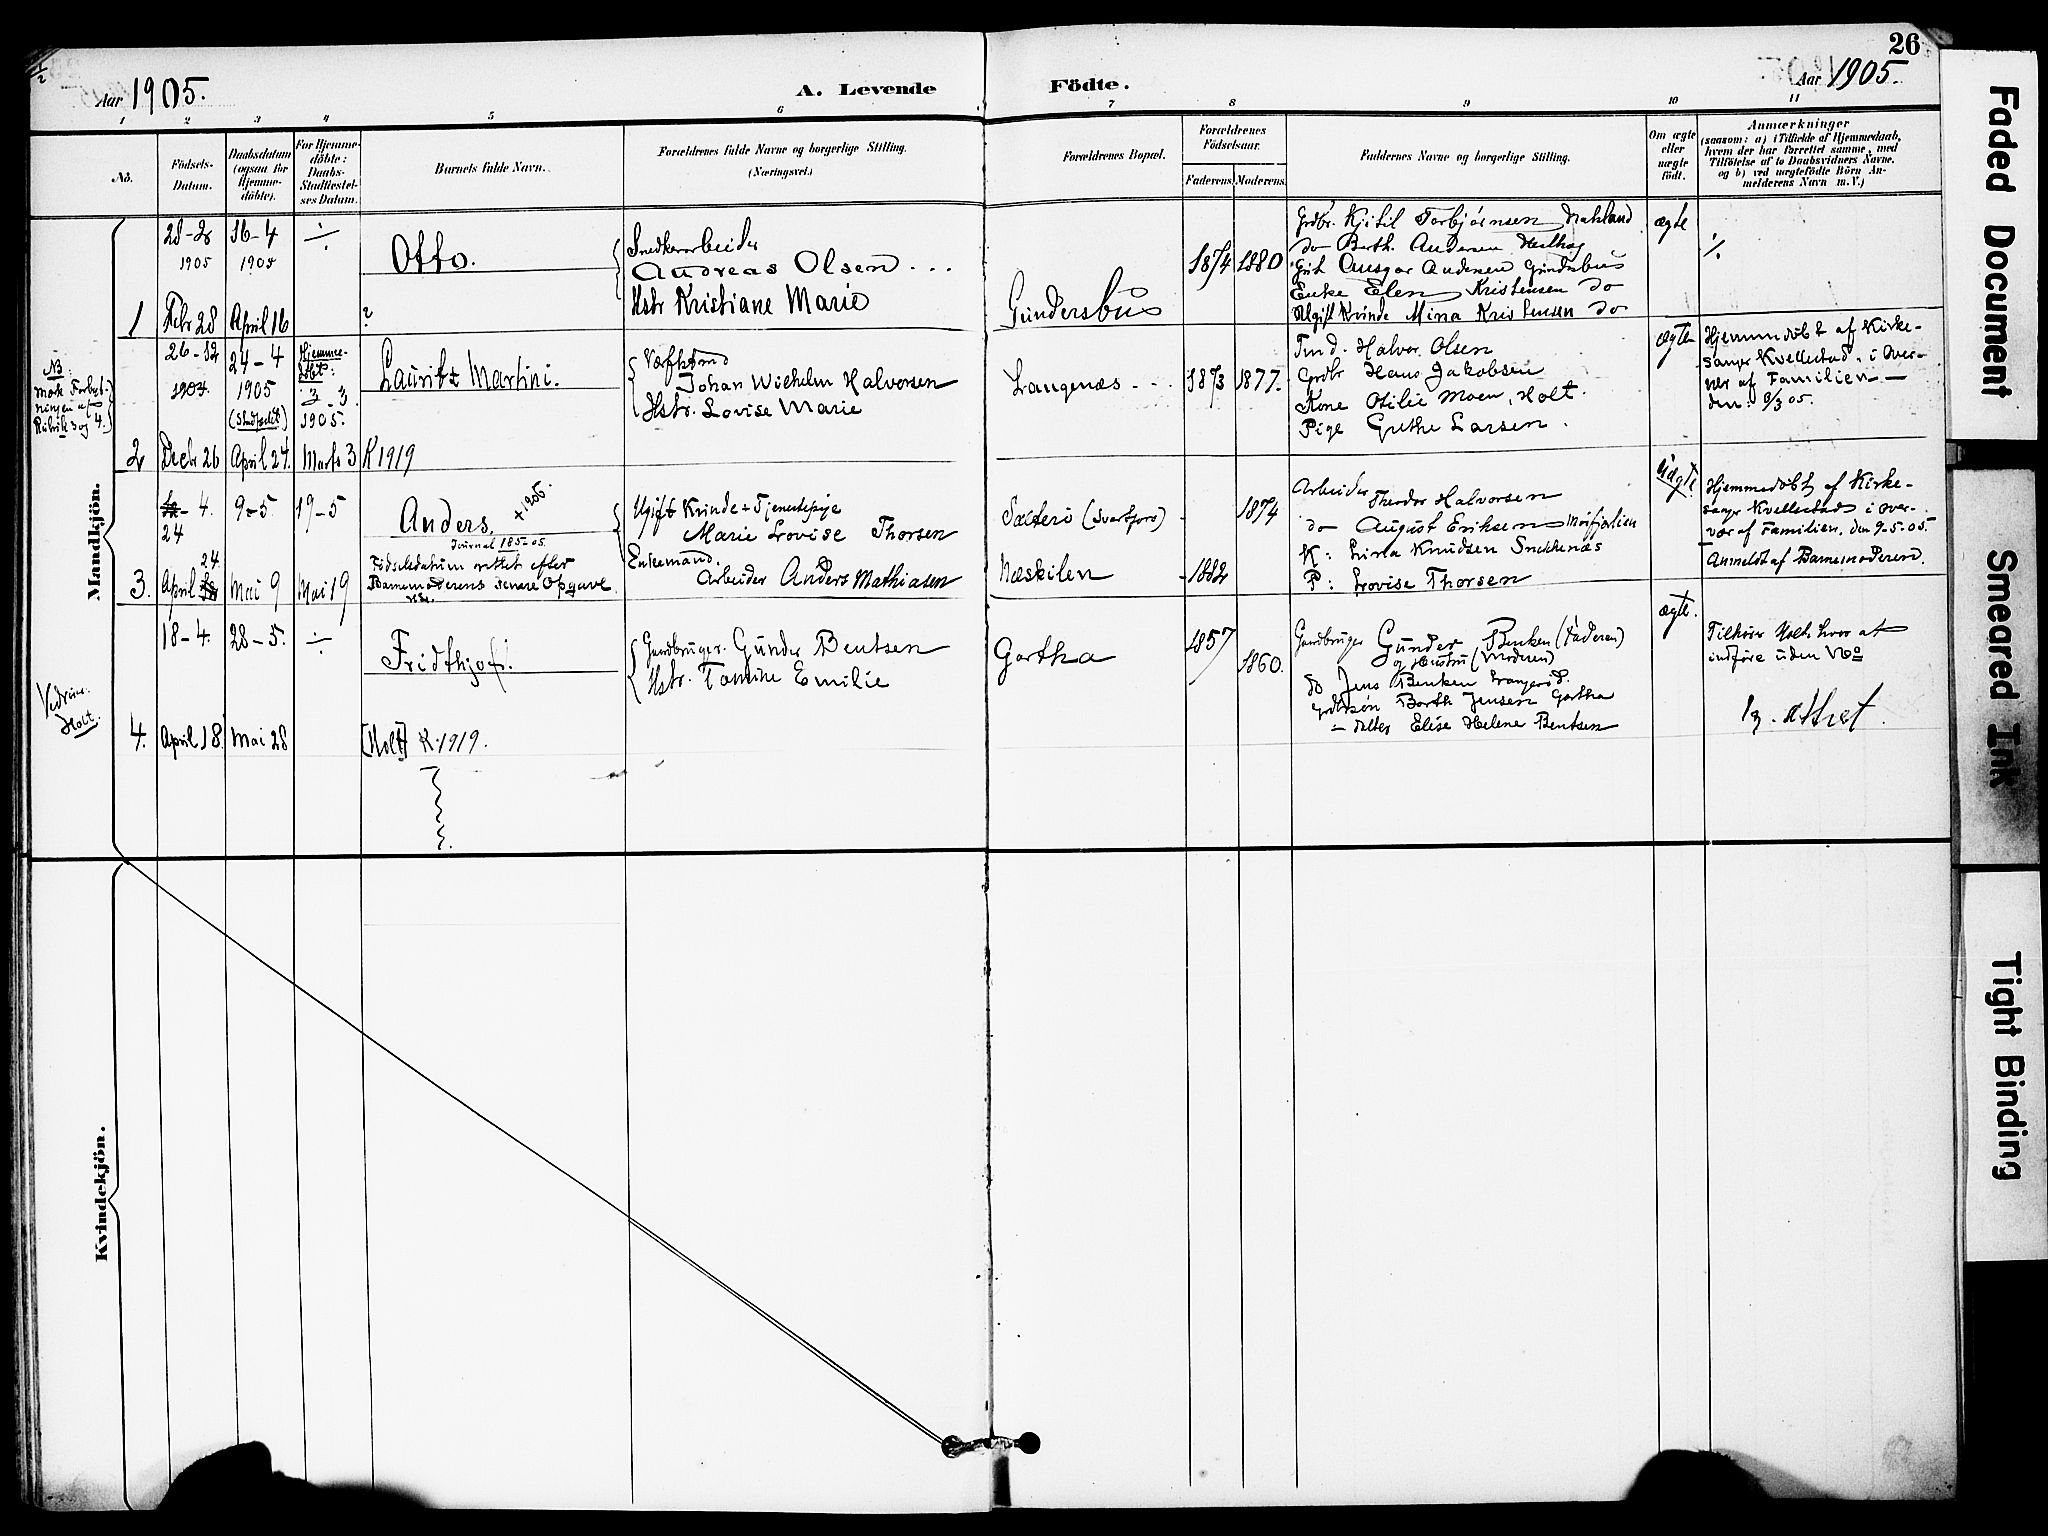 26
Aar 1905.
A. Levende Födte.
Aar 1905.
1 2 3 4 5 6 7 8 9 10 11
No.
Födsels-
Datum.
Daabsdatum
(ogsaa for
Hjemme-
döbte).
For Hjemme-
döbte:
Daabs-
Stadfæstel-
ses Datum.
Barnets fulde Navn.
Forældrenes fulde Navne og borgerlige Stilling.
(Næringsvei.)
Forældrenes Bopæl.
Forældrenes
Födselsaar.
Faderens Moderens
Faddernes Navne og borgerlige Stilling.
Om ægte
eller
uægte
födt.
Anmærkninger
(saasom: a) i Tilfælde af Hjemmedaab,
hvem der har forrettet samme, med
Tilföielse af to Daabsvidners Navne,
og b) ved uægtefödte Börn An-
melderens Navn m. V.)
Mandkjön.
1
28-2
1905
Febr 28
16-4
1905
April 16
÷
Otto.
?
Snedkerarbeider
Andreas Olsen...
Hstr Kristiane Marie
Gundersbu
1874 1880
Grdbr. Kjitil Torbjörnsen Nakland
do Berth. Andersen
Gut Ansgar Andersen Gundersbu
Enke Elen Kristensen do
Ugift Kvinde Mina Kristensen do
ægte
%
NB:
Mærk Forbyt-
ningen af
Rubrik 3 og 4.
2
26-12
1904
Decbr 26
24-4
1905
(Stadfæstet)
April 24.
Hjemme-
döbt:
3-3
1905.
Marts 3
Lauritz Martini.
K 1919
Johan Wilhelm Halvorsen
Hstr. Lovise Marie
Langenæs - - -
1873 1877.
Tmd. Halvor Olsen
Grdbr Hans Jakobsen
Kone Otilie Moen, Holt.
Pige Guthe Larsen.
ægte
Hjemmedöbt af Kirke-
sanger Kvellestad, i Over-
vær af Familien -
den: 3/3 05.
3.
- 4.
24
24
April
9-5
Mai 9
19-5
Mai 19
Anders. +1905.
Journal 185-05.
Födselsdatum rettet efter
Barnemoderens senere Opgave
Ugift Kvinde + Tjenestepige
Marie Lovise Thorsen
Enkemand.
Arbeider Anders Mathiasen
Sælterö (Svartjord)
Næskilen
1874
1882
Arbeider Theodor Halvorsen
do August Eriksen
K: Lina Knudsen Snekkenæs
P: Lovise Thorsen
Uægte
Hjemmedöbt af Kirke-
sanger Kvellestad i Over-
vær af Familien, den 9-5-05
Anmeldt af Barnemoderen.
Vedrörer
Holt.
4.
18-4.
April 18
28-5.
Mai 28
÷
Fridthjof.
[Holt] K. 1919.
Gaardbruger. Gunder Bentsen
Hstr. Tomine Emilie
Gartha
1857
1860.
Gaardbruger Gunder Bentsen (Faderen)
og Hustru (Moderen)
do Jens Bentsen
Grdbrsön Berth Jensen Gartha
- datter Elise Helene Bentsen
ægte.
Tilhörer Holt, hvor at
indföre uden No
Kvindekjön.
Faded Document
Smeared Ink
Tight Binding